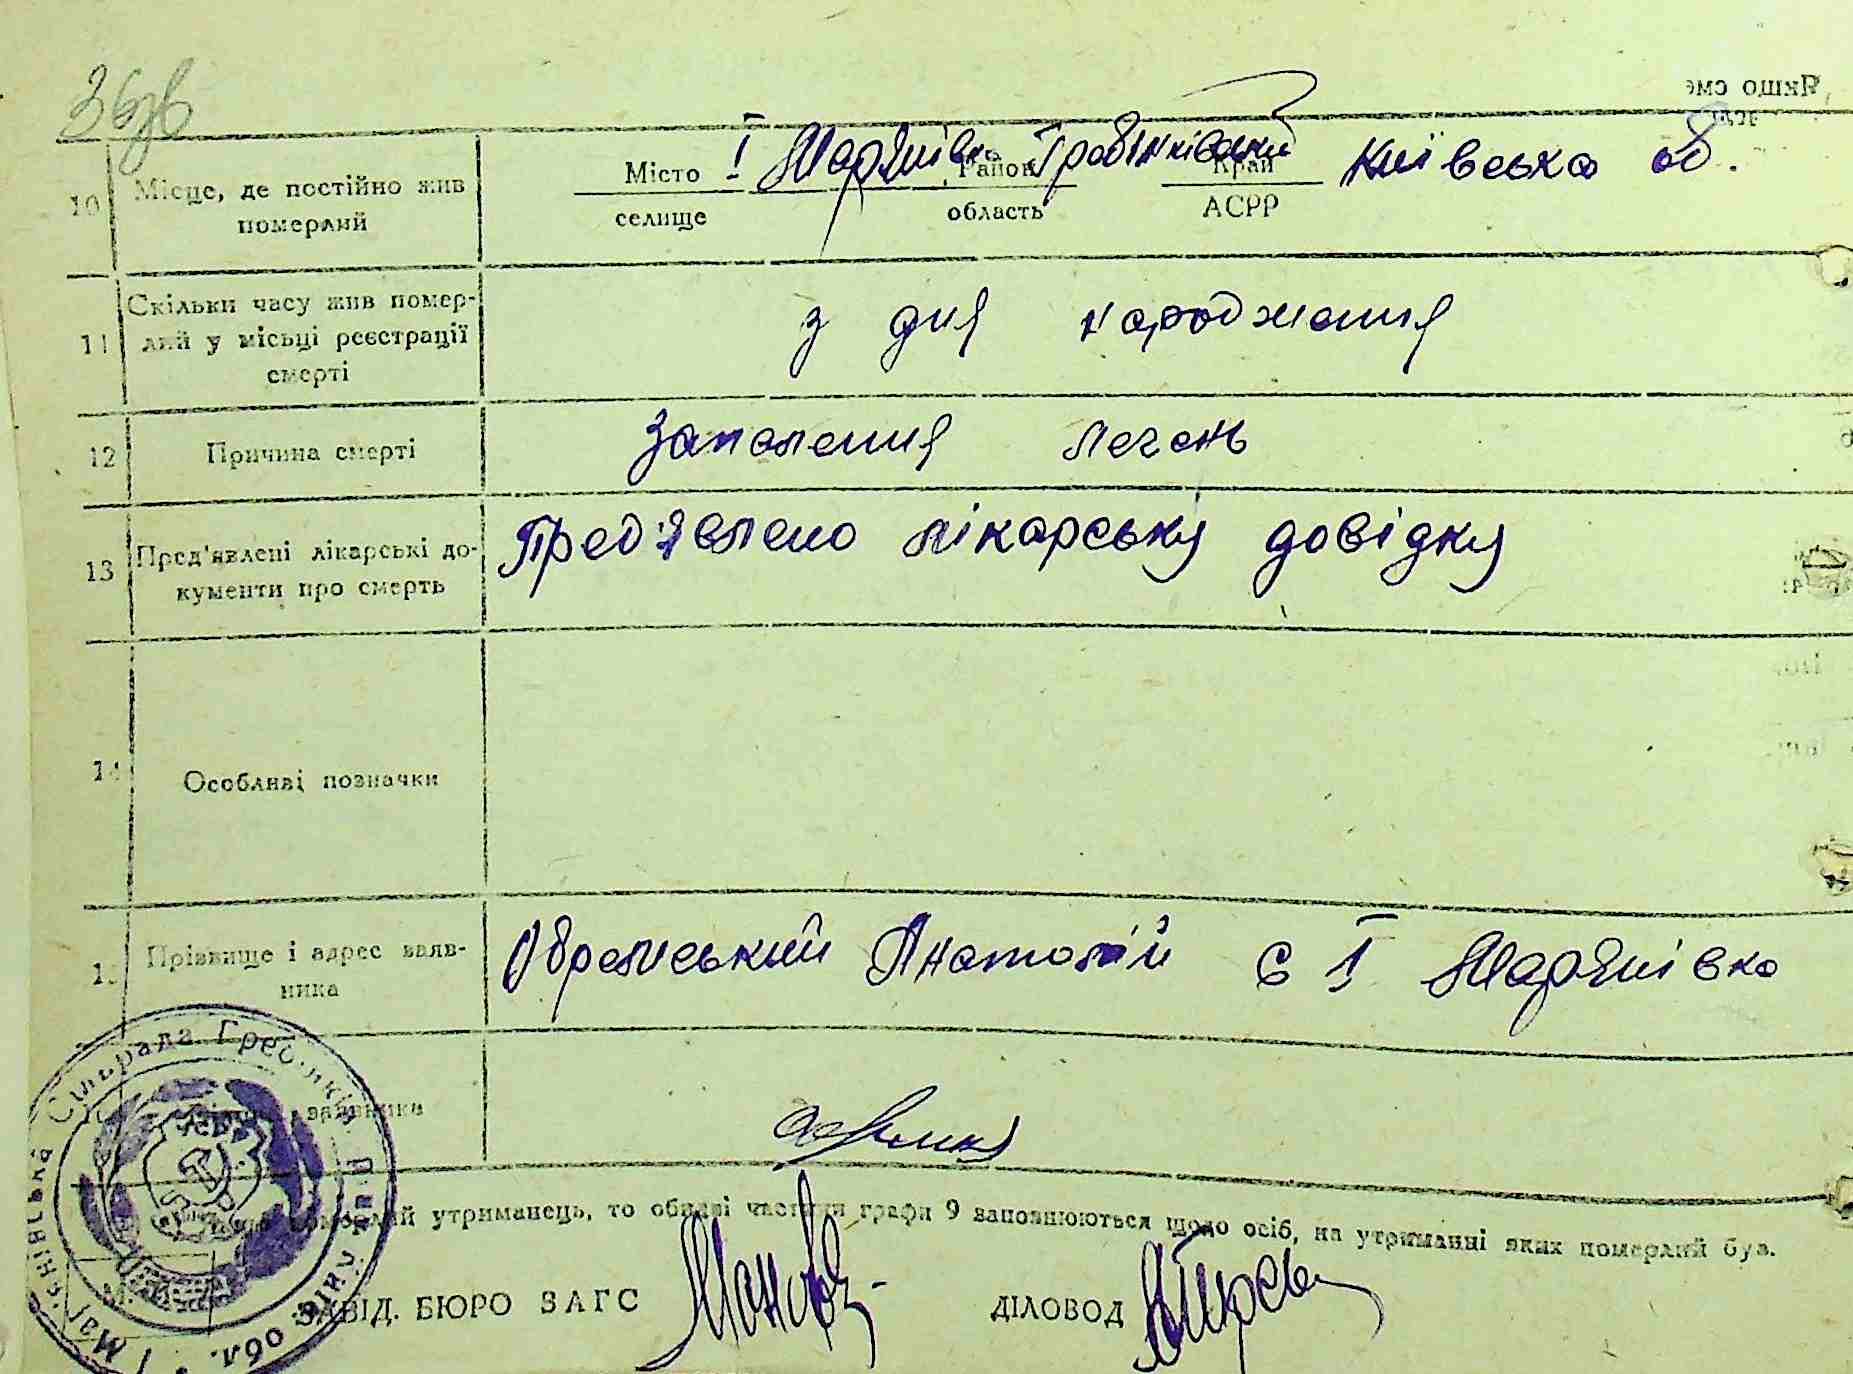 Якщо сме
10 Місце, де постійно жив померлий
Місто селище Район область Край АСРР
І Мар'янівка Гребінківський Київська об.
11 Скільки часу жив померлий у місьці реєстрації смерті
з дня народження
12 Причина смерті
Запаления печень
13 Пред'явлені лікарські документи про смерть
Пред'явлено лікарську довідку
14 Особливі позначки
15 Прізвище і адрес заявника
Абрамський Анатолій с І Мар'янівка
заявника
померлий утриманець, то обидві частини графи 9 заповнюються щодо осіб, на утриманні яких померлий був.
ЗАВІД. БЮРО ЗАГС
ДІЛОВОД
Сільрада Гребінків обл.